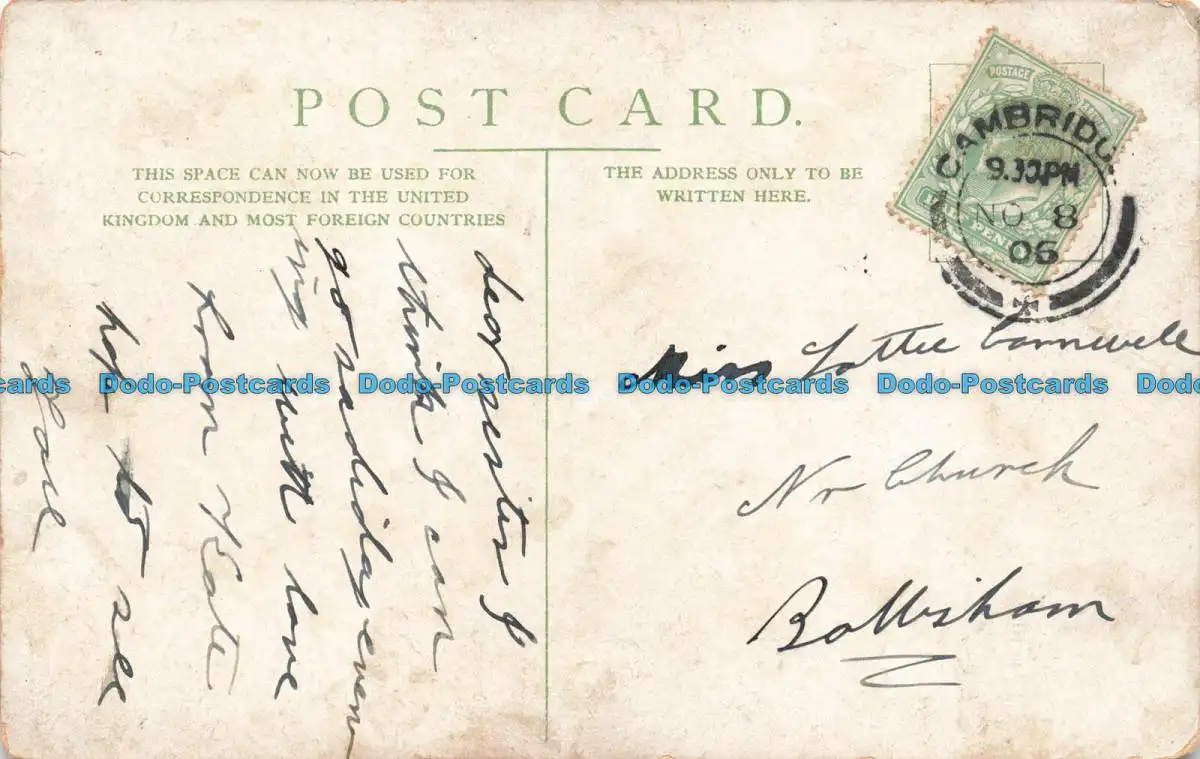 POST CARD.
THIS SPACE CAN NOW BE USED FOR
CORRESPONDENCE IN THE UNITED
KINGDOM AND MOST FOREIGN COUNTRIES
THE ADDRESS ONLY TO BE
WRITTEN HERE.
POSTAGE
CAMBRIDG
PM
NO 8
06
PENN
dear sister I
think I can
go saturday even
ing with love
from Kate
hop to see
Miss Lottie
Nr Church
Bottisham
Dodo-Postcards Dodo-Postcards Dodo-Postcards Dodo-Postcards Dodo-Postcards